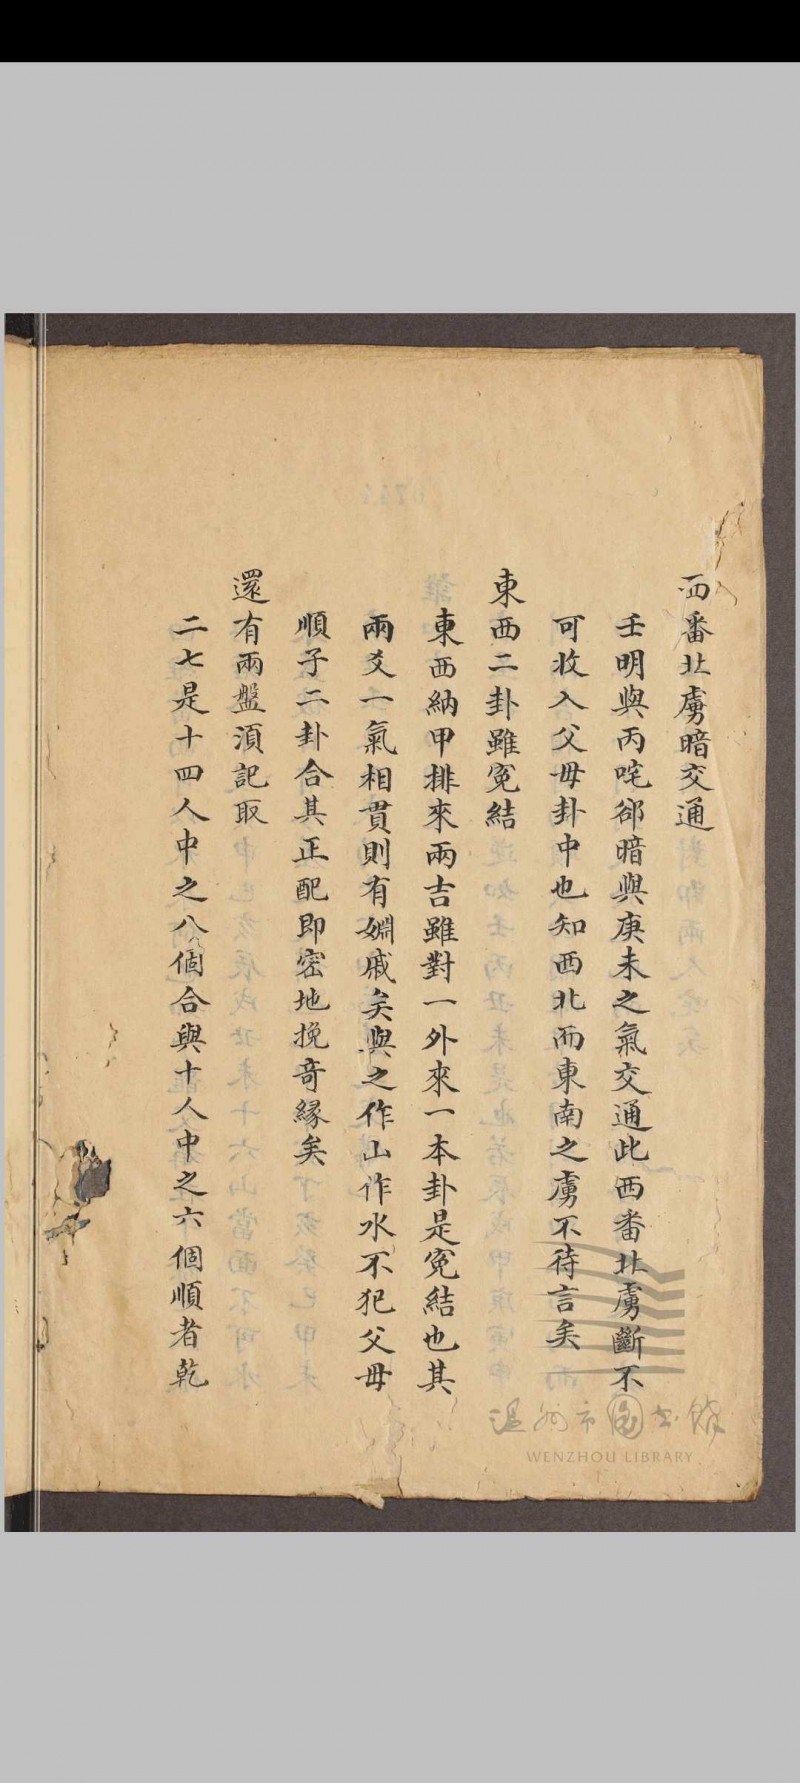 西番北虜暗交通
壬明與丙咤郤暗與庚未之氣交通此西番北虜斷不
可收入父母卦中也知西北而東南之虜不待言矣
東西二卦雖寃結
東西納甲排來兩吉雖對一外來一本卦是寃結也其
兩爻一氣相貫則有婣戚矣與之作山作水不犯父母
順子二卦合其正配即密地挽竒緣矣
還有兩盤須記取
二七是十四人中之八個合與十人中之六個順者乾
温州市图书馆
WENZHOU LIBRARY